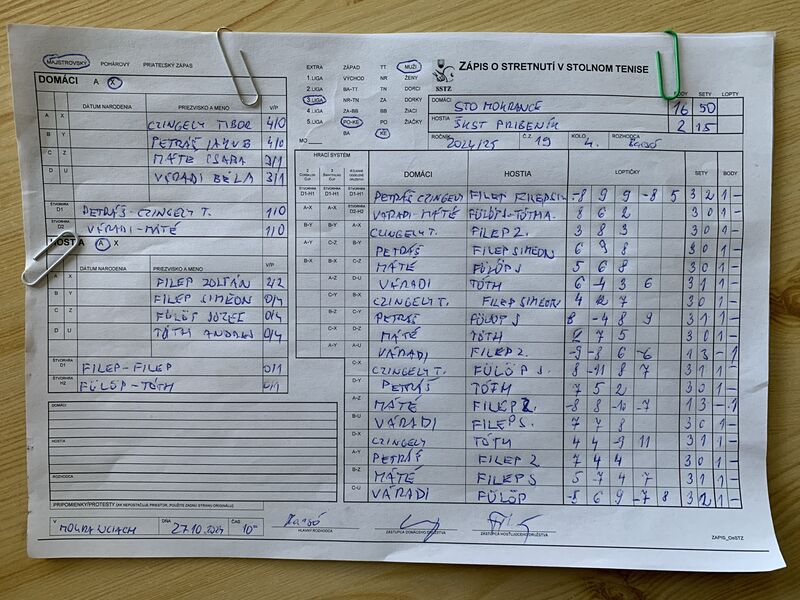 MAJSTROVSKÝ POHÁROVÝ PRIATEĽSKÝ ZÁPAS
DOMÁCI A X
DÁTUM NARODENIA PRIEZVISKO A MENO V/P
A X CZINGELY TIBOR 4/0
B Y PETRÁŠ JAKUB 4/0
C Z MÁTE CSABA 3/1
D U VÁRADI BÉLA 3/1
ŠTVORHRA D1 PETRÁŠ-CZINGELY T. 1/0
ŠTVORHRA D2 VÁRADI-MÁTÉ 1/0
HOSTIA A X
DÁTUM NARODENIA PRIEZVISKO A MENO V/P
A X FILEP ZOLTÁN 2/2
B Y FILEP SIMEON 0/4
C Z FÜLÖP JÓZEF 0/4
D U TÓTH ANDREJ 0/4
ŠTVORHRA D1 FILEP-FILEP 0/1
ŠTVORHRA H2 FÜLÖP-TÓTH 0/1
DOMÁCI
HOSTIA
ROZHODCA
PRIPOMIENKY/PROTESTY (AK NEPOSTAČUJE PRIESTOR, POUŽITE ZADNÚ STRANU ORIGINÁLU)
V MOKRANCIACH DŇA 27.10.2024 ČAS 10⁰⁰
HLAVNÝ ROZHODCA
ZÁSTUPCA DOMÁCEHO DRUŽSTVA
ZÁSTUPCA HOSŤUJÚCEHO DRUŽSTVA
ZAPIS_OsSTZ
EXTRA ZÁPAD TT MUŽI
1.LIGA VÝCHOD NR ŽENY
2.LIGA BA-TT TN DORCI
3.LIGA NR-TN ZA DORKY
4.LIGA ZA-BB BB ŽIACI
5.LIGA PO-KE PO ŽIAČKY
MO BA KE
SSTZ
ZÁPIS O STRETNUTÍ V STOLNOM TENISE
BODY SETY LOPTY
DOMÁCI STO MOKRANCE 16 50
HOSTIA ŠKST PRIBENÍK 2 15
ROČNÍK 2024/25 Č. 19 KOLO 4. ROZHODCA
HRACÍ SYSTÉM DOMÁCI HOSTIA LOPTIČKY SETY BODY
PETRÁŠ CZINGELY FILEP FILEP SIM. -8 9 9 -8 5 3 2 1 -
VÁRADI-MÁTÉ FÜLÖP J-TÓTH A. 8 6 2 3 0 1 -
CZINGELY T. FILEP Z. 3 8 3 3 0 1 -
PETRÁŠ FILEP SIMEON 6 9 8 3 0 1 -
MÁTÉ FÜLÖP J 5 6 8 3 0 1 -
VÁRADI TÓTH 6 -4 3 6 3 1 1 -
CZINGELY T. FILEP SIMEON 4 2 7 3 0 1 -
PETRÁŠ FÜLÖP J 8 -4 8 9 3 1 1 -
MÁTÉ TÓTH 2 7 5 3 0 1 -
VÁRADI FILEP Z. -9 -8 6 -6 1 3 - 1
CZINGELY T. FÜLÖP J. 8 -11 8 7 3 1 1 -
PETRÁŠ TÓTH 7 5 2 3 0 1 -
MÁTÉ FILEP Z. -8 8 -10 -7 1 3 - 1
VÁRADI FILEP S. 7 7 8 3 0 1 -
CZINGELY TÓTH 4 4 -9 11 3 1 1 -
PETRÁŠ FILEP Z 7 4 4 3 0 1 -
MÁTÉ FILEP S 5 -7 4 7 3 1 1 -
VÁRADI FÜLÖP -5 6 9 -7 8 3 2 1 -